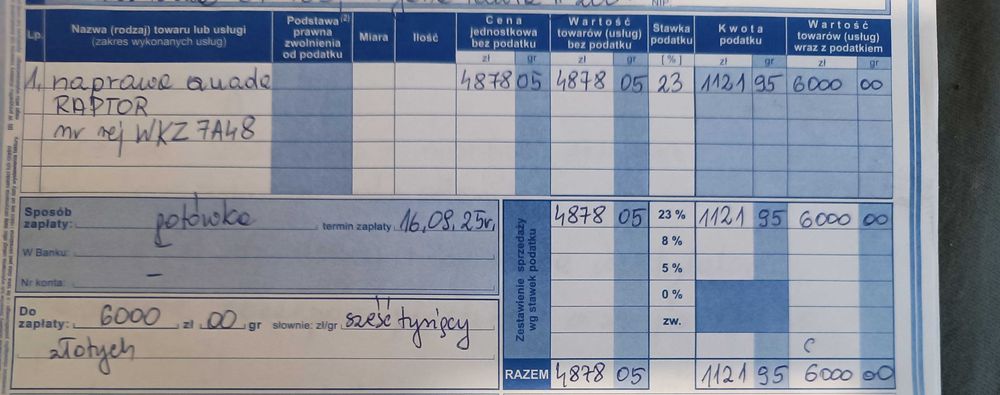 Lp. Nazwa (rodzaj) towaru lub usługi (zakres wykonanych usług) Podstawa (2) prawna zwolnienia od podatku Miara Ilość Cena jednostkowa bez podatku Wartość towarów (usług) bez podatku Stawka podatku Kwota podatku Wartość towarów (usług) wraz z podatkiem
zł gr zł gr [%] zł gr zł gr
1, naprawa quada 4878 05 4878 05 23 1121 95 6000 00
RAPTOR
nr rej WKZ 7A48
Sposób zapłaty: gotówka termin zapłaty 16,09,25r,
W Banku:
Nr konta: –
Zestawienie sprzedaży wg stawek podatku
4878 05 23 % 1121 95 6000 00
8 %
5 %
0 %
zw.
Do zapłaty: 6000 zł 00 gr słownie: zł/gr sześć tysięcy
złotych
RAZEM 4878 05 1121 95 6000 00